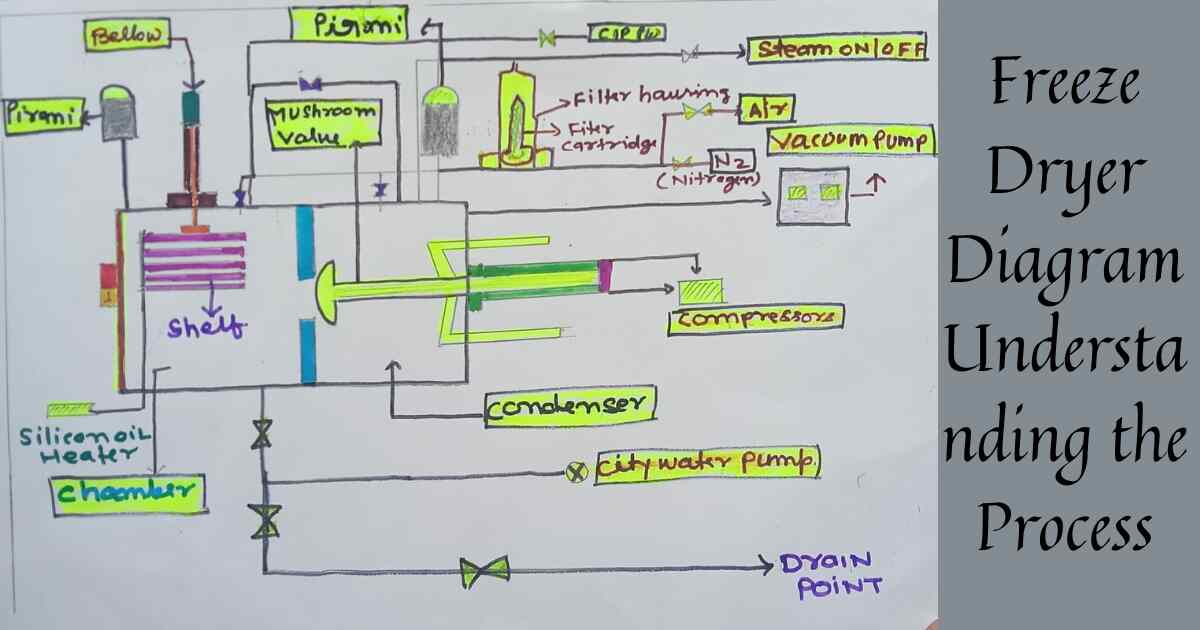 Bellow
Pirani
CIP PW
Steam ON/OFF
Pirani
Mushroom
Valve
Filter housing
Filter
cartridge
Air
Vacuum pump
N2
(Nitrogen)
Shelf
Compressors
Condenser
Silicon oil
Heater
Chamber
City water pump
DRAIN
POINT
Freeze
Dryer
Diagram
Understa
nding the
Process